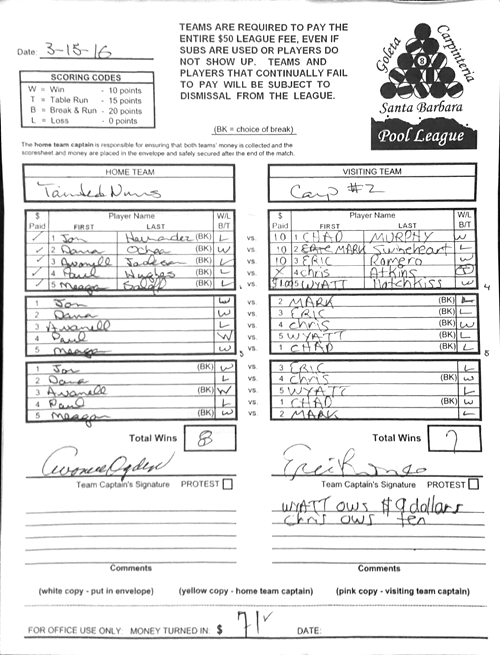 TEAMS ARE REQUIRED TO PAY THE
ENTIRE $50 LEAGUE FEE, EVEN IF
SUBS ARE USED OR PLAYERS DO
NOT SHOW UP. TEAMS AND
PLAYERS THAT CONTINUALLY FAIL
TO PAY WILL BE SUBJECT TO
DISMISSAL FROM THE LEAGUE.
Date: 3-15-16
Goleta
Carpinteria
8
Santa Barbara
Pool League
SCORING CODES
W = Win - 10 points
T = Table Run - 15 points
B = Break & Run - 20 points
L = Loss - 0 points
(BK = choice of break)
The home team captain is responsible for ensuring that both teams' money is collected and the
scoresheet and money are placed in the envelope and safely secured after the end of the match.
HOME TEAM
Tainted Nuns
$ Player Name W/L
Paid FIRST LAST B/T
✓ 1 Jon Hernandez (BK) L vs.
✓ 2 Dana Ochoa (BK) W vs.
✓ 3 Avanell (BK) L vs.
✓ 4 Paul Hughes (BK) L vs.
✓ 5 Meagan (BK) L vs.
1
1 Jon W vs.
2 Dana W vs.
3 Avanell L vs.
4 Paul W vs.
5 Meagan W vs.
1 Jon (BK) W vs.
2 Dana L vs.
3 Avanell (BK) W vs.
4 Paul L vs.
5 Meagan (BK) W vs.
Total Wins 8
Team Captain's Signature PROTEST
Comments
VISITING TEAM
Carp #2
$ Player Name W/L
Paid FIRST LAST B/T
10 1 CHAD MURPHY W
10 2 MARK Swineheart L
10 3 ERIC Romero W
X 4 Chris Atkins
5 WYATT Hotchkiss W
4
2 MARK (BK) L
3 ERIC (BK) L
4 Chris (BK) W
5 WYATT (BK) L
1 CHAD (BK) L
3 ERIC L
4 Chris (BK) W
5 WYATT L
1 CHAD (BK) W
2 MARK L
Total Wins 7
Team Captain's Signature PROTEST
WYATT ows $9 dollars
Chris ows ten
Comments
(white copy - put in envelope) (yellow copy - home team captain) (pink copy - visiting team captain)
FOR OFFICE USE ONLY: MONEY TURNED IN: $ 71 ✓ DATE: